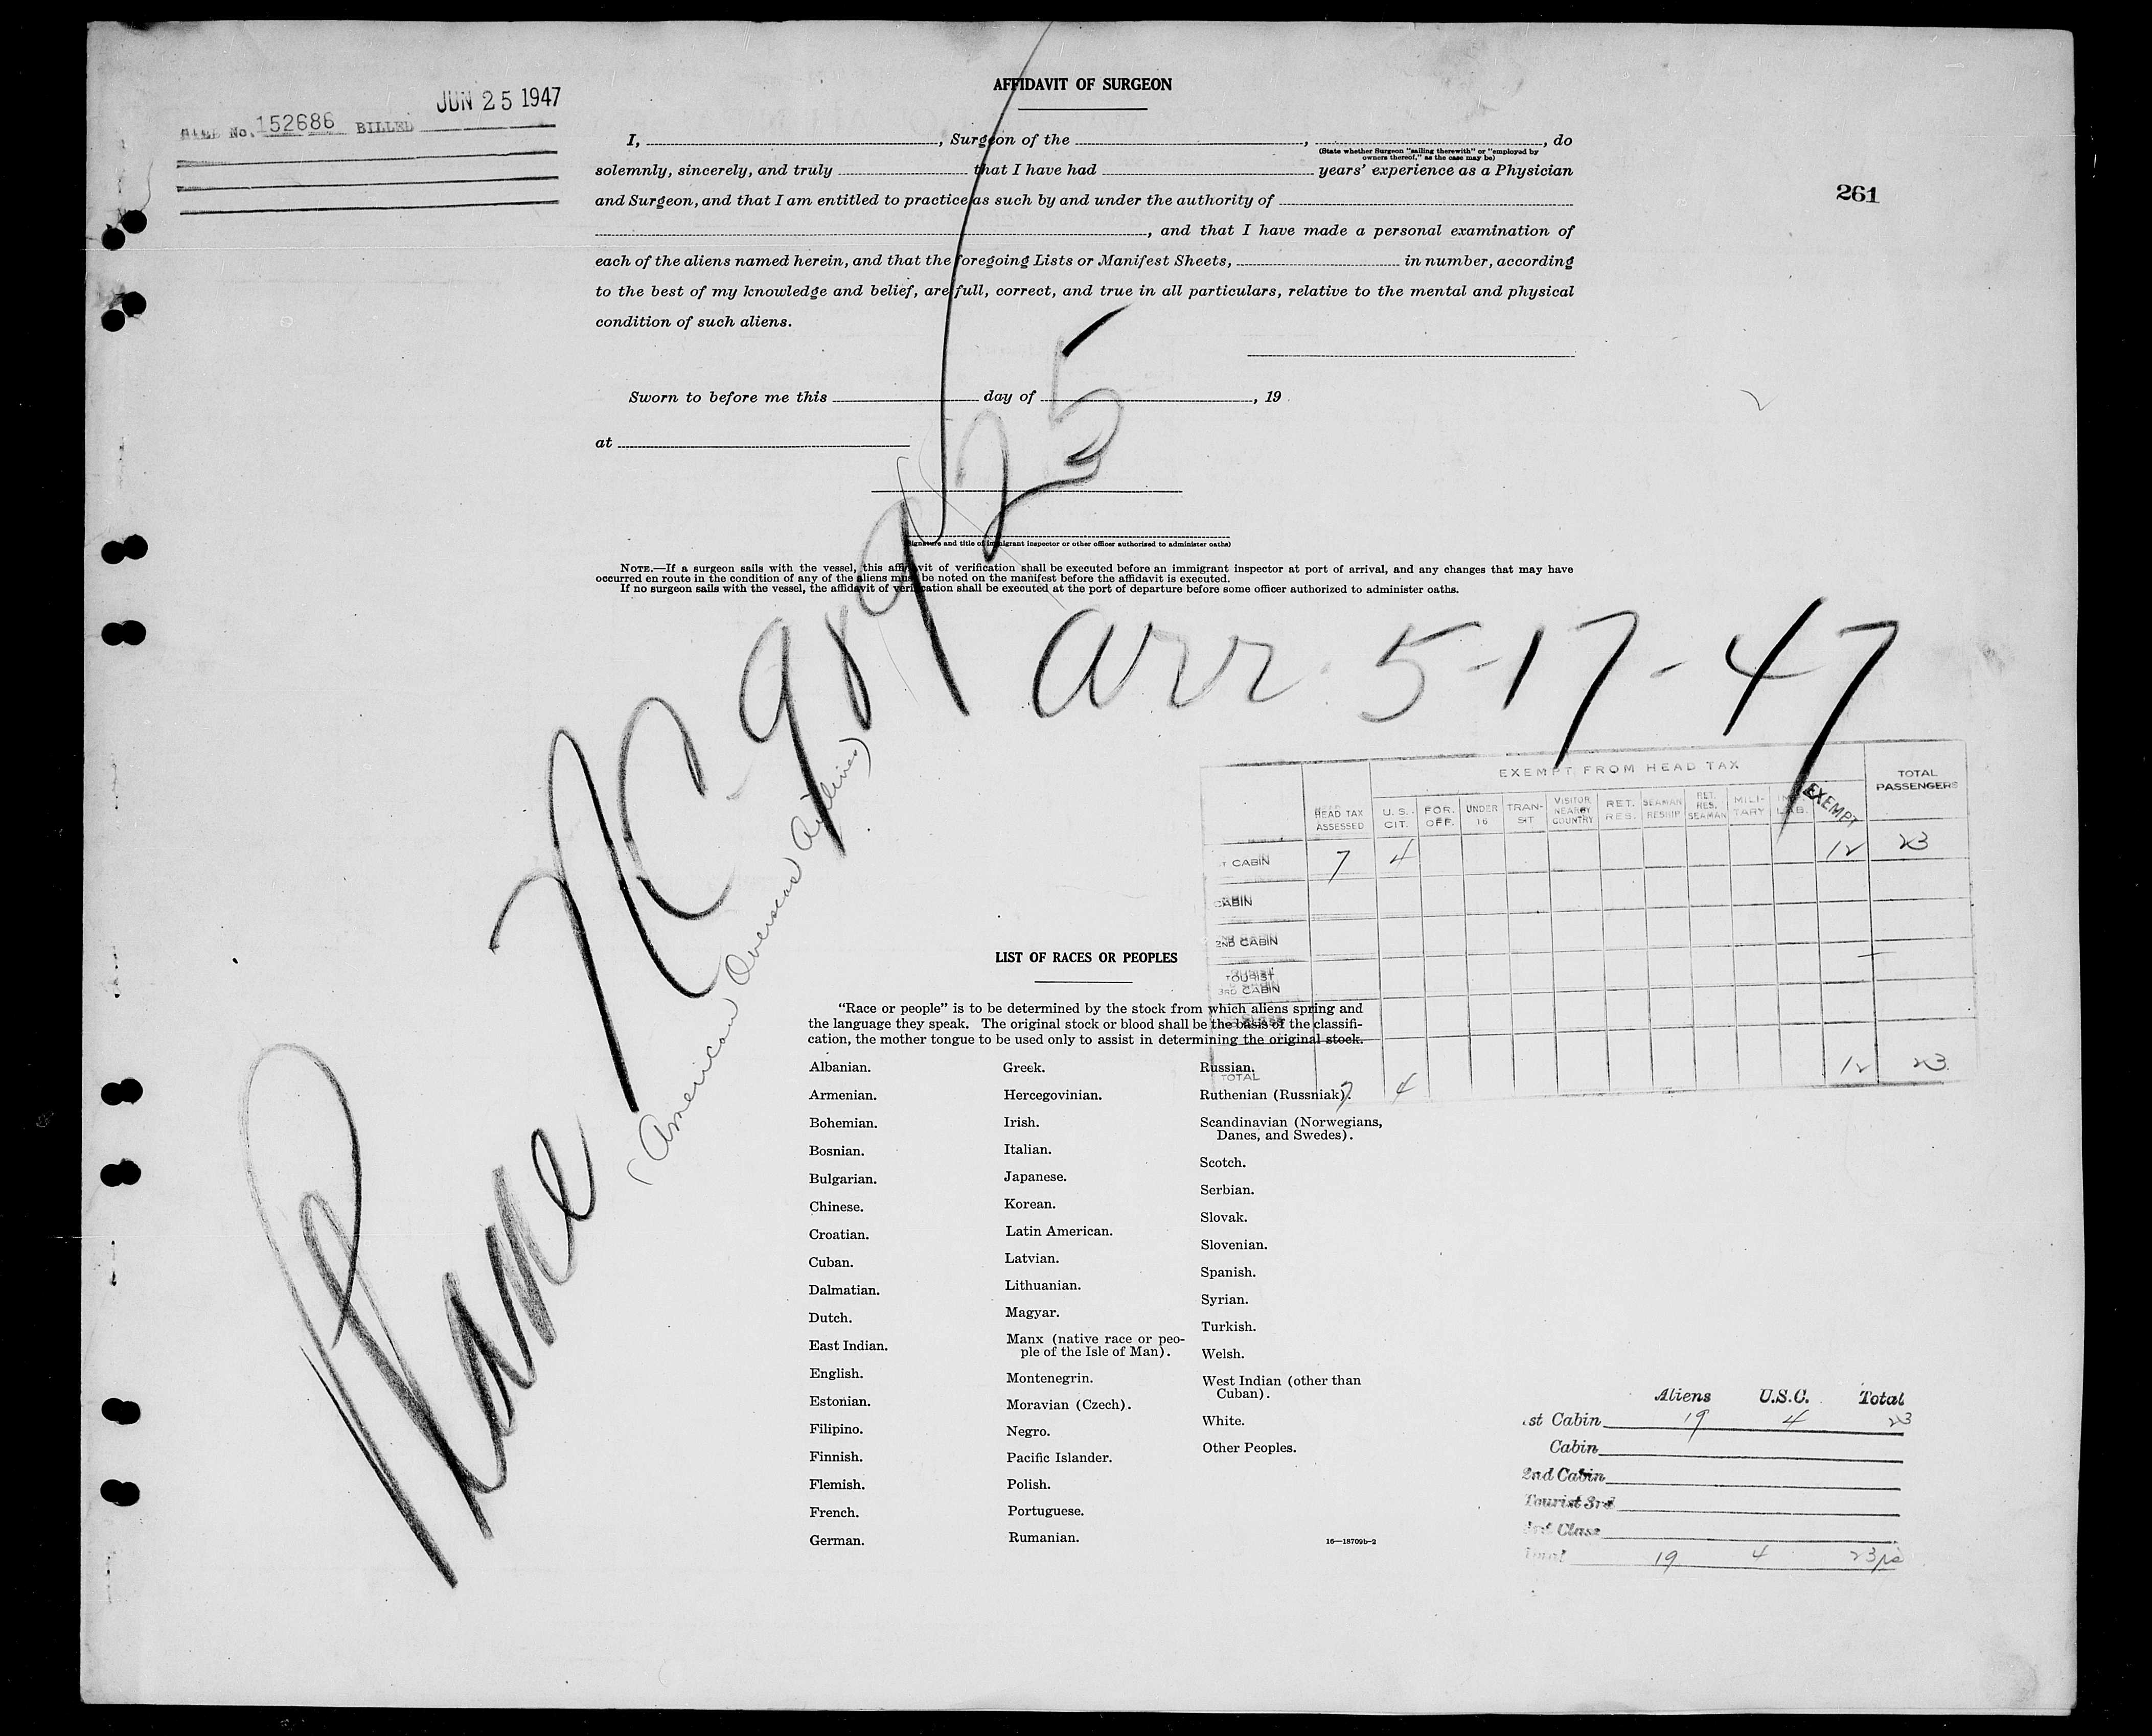 JUN 25 1947
No. 152686 BILLED
AFFIDAVIT OF SURGEON
I, , Surgeon of the , , do
(State whether Surgeon "sailing therewith" or "employed by
owners thereof," as the case may be)
solemnly, sincerely, and truly that I have had years' experience as a Physician
and Surgeon, and that I am entitled to practice as such by and under the authority of
, and that I have made a personal examination of
each of the aliens named herein, and that the foregoing Lists or Manifest Sheets, in number, according
to the best of my knowledge and belief, are full, correct, and true in all particulars, relative to the mental and physical
condition of such aliens.
261
Sworn to before me this day of , 19
at
(Signature and title of immigrant inspector or other officer authorized to administer oaths)
NOTE.—If a surgeon sails with the vessel, this affidavit of verification shall be executed before an immigrant inspector at port of arrival, and any changes that may have
occurred en route in the condition of any of the aliens must be noted on the manifest before the affidavit is executed.
If no surgeon sails with the vessel, the affidavit of verification shall be executed at the port of departure before some officer authorized to administer oaths.
Plane NC-90925
arr. 5-17-47
(American Overseas Airlines)
EXEMPT FROM HEAD TAX
HEAD TAX ASSESSED U.S. CIT. FOR. OFF. UNDER 16 TRAN-SIT VISITOR NEARBY COUNTRY RET. RES. SEAMAN RESHIP RET. RES. SEAMAN MILI-TARY LAB. EXEMPT TOTAL PASSENGERS
ST CABIN 7 4 12 23
CABIN
2ND CABIN
TOURIST
3RD CABIN
TOTAL 7 4 12 23
LIST OF RACES OR PEOPLES
"Race or people" is to be determined by the stock from which aliens spring and
the language they speak. The original stock or blood shall be the basis of the classifi-
cation, the mother tongue to be used only to assist in determining the original stock.
Albanian.
Armenian.
Bohemian.
Bosnian.
Bulgarian.
Chinese.
Croatian.
Cuban.
Dalmatian.
Dutch.
East Indian.
English.
Estonian.
Filipino.
Finnish.
Flemish.
French.
German.
Greek.
Hercegovinian.
Irish.
Italian.
Japanese.
Korean.
Latin American.
Latvian.
Lithuanian.
Magyar.
Manx (native race or peo-
ple of the Isle of Man).
Montenegrin.
Moravian (Czech).
Negro.
Pacific Islander.
Polish.
Portuguese.
Rumanian.
Russian.
Ruthenian (Russniak).
Scandinavian (Norwegians,
Danes, and Swedes).
Scotch.
Serbian.
Slovak.
Slovenian.
Spanish.
Syrian.
Turkish.
Welsh.
West Indian (other than
Cuban).
White.
Other Peoples.
16—18709b-2
Aliens U.S.C. Total
1st Cabin 19 4 23
Cabin
2nd Cabin
Tourist 3rd
3rd Class
Total 19 4 23